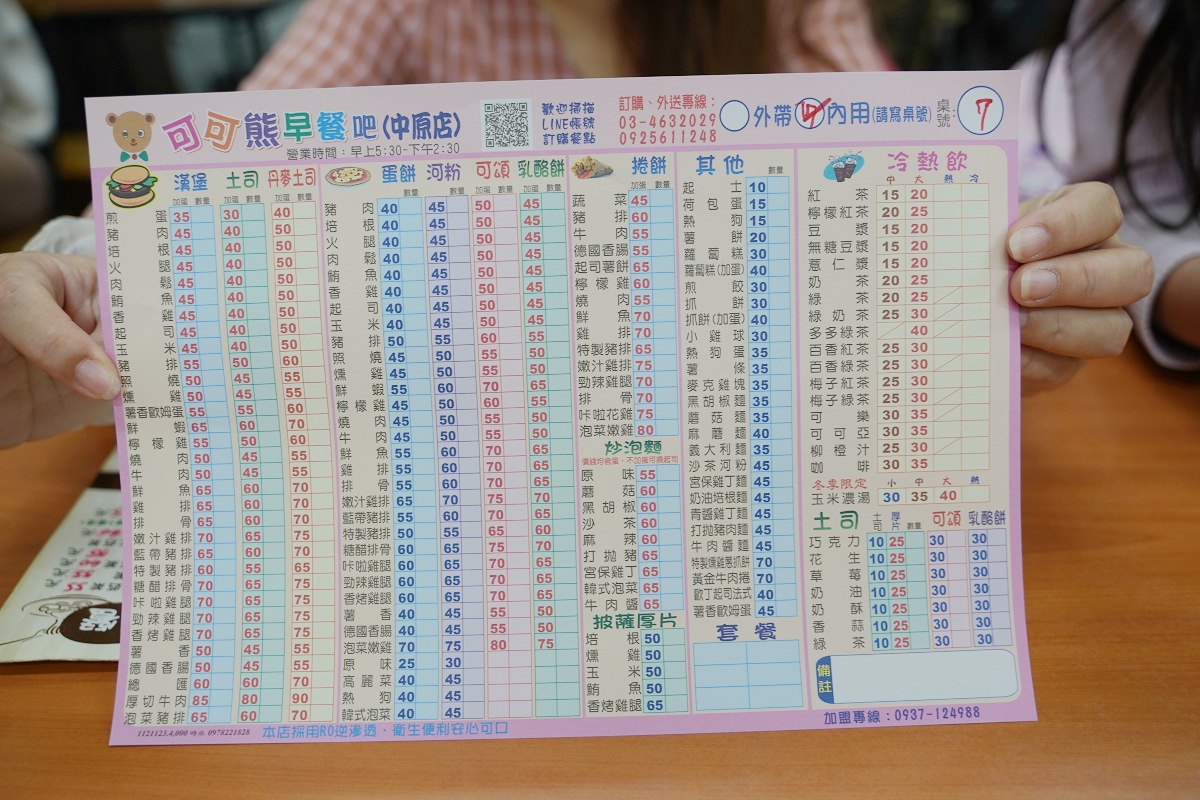 可可熊早餐吧(中原店)
營業時間：早上5:30-下午2:30
歡迎掃描
LINE帳號
訂購餐點
訂購、外送專線：
03-4632029
0925611248
外帶 內用(請寫桌號) 桌號： 7
漢堡 土司 丹麥土司
加蛋 數量 加蛋 數量 加蛋 數量
煎蛋 35 30 40
豬肉 45 40 50
培根 45 40 50
火腿 45 40 50
肉鬆 45 40 50
鮪魚 45 40 50
香雞 45 40 50
起司 45 40 50
玉米 45 40 50
豬排 55 50 60
照燒 50 45 55
燻雞 50 45 55
薯香歐姆蛋 55 55 60
鮮蝦 65 60 70
檸檬雞 55 50 60
燒肉 50 45 55
牛肉 50 45 55
鮮魚 65 60 70
雞排 65 60 70
排骨 65 60 70
嫩汁雞排 70 65 75
藍帶豬排 65 60
特製豬排 60 55 65
糖醋排骨 70 65 75
咔啦雞腿 70 65 75
勁辣雞腿 70 65 75
香烤雞腿 70 65 75
薯香 50 45 55
德國香腸 50 45 55
總匯 60 60 70
厚切牛肉 85 80 90
泡菜豬排 65 60 70
蛋餅 河粉 可頌 乳酪餅
數量 數量 加蛋 數量 加蛋 數量
豬肉 40 45 50 45
培根 40 45 50 45
火腿 40 45 50 45
肉鬆 40 45 50 45
鮪魚 40 45 50 45
香雞 40 45 50 45
起司 40 45 50 45
玉米 40 45 50 45
豬排 50 55 60 55
照燒 45 50 55 50
燻雞 45 50 55
鮮蝦 55 60 70 65
檸檬雞 45 50
燒肉 45 50
牛肉 45 50 55 50
鮮魚 55 60 70 65
雞排 55 60
排骨 55 60
嫩汁雞排 65 70 75 70
藍帶豬排 55 60
特製豬排 50 55
糖醋排骨 60 65 75 70
咔啦雞腿 60 65 70 65
勁辣雞腿 60 65 70 65
香烤雞腿 60 65 70 65
薯香 40 45 55 50
德國香腸 40 45 55 50
泡菜嫩雞 70 75 80 75
原味 25 30
高麗菜 40 45
熱狗 40 45
韓式泡菜 40 45
捲餅
加蛋 數量
蔬菜 45
豬排 60
牛肉 55
德國香腸 55
起司薯餅 65
檸檬雞 60
燒肉 55
鮮魚 70
雞排 70
特製豬排 65
嫩汁雞排 75
勁辣雞腿 70
排骨 70
咔啦花雞 75
泡菜嫩雞 80
炒泡麵
價錢均含蛋，不加蛋可換起司
原味 55
蘑菇 60
黑胡椒 60
沙茶 60
麻辣 60
打拋豬 65
宮保雞丁 65
韓式泡菜 65
牛肉醬 65
披薩厚片
培根 50
燻雞 50
玉米 50
鮪魚 50
香烤雞腿 65
其他
數量
起士 10
荷包蛋 15
熱狗 15
薯餅 20
蘿蔔糕 30
蘿蔔糕(加蛋) 40
煎餃 30
抓餅 30
抓餅(加蛋) 40
小雞球 30
熱狗蛋 35
薯條 35
麥克雞塊 35
黑胡椒麵 35
蘑菇麵 35
麻蘑麵 40
義大利麵 35
沙茶河粉 45
宮保雞丁麵 45
奶油培根麵 45
青醬雞丁麵 45
打拋豬肉麵 45
牛肉醬麵 45
特製燻雞蔥抓餅 70
黃金牛肉捲 70
歐丁起司法式 40
薯香歐姆蛋 45
套餐
冷熱飲
中 大 熱 冷
紅茶 15 20
檸檬紅茶 20 25
豆漿 15 20
無糖豆漿 15 20
薏仁漿 15 20
奶茶 15 20
綠茶 20 25
綠奶茶 25 30
多多綠茶 40
百香紅茶 25 30
百香綠茶 25 30
梅子紅茶 25 30
梅子綠茶 25 30
可樂 30 35
可可亞 30 35
柳橙汁 25 30
咖啡 30 35
冬季限定 小 中 大 熱
玉米濃湯 30 35 40
土司 土司 厚片 數量 可頌 乳酪餅
巧克力 10 25 30 30
花生 10 25 30 30
草莓 10 25 30 30
奶油 10 25 30 30
奶酥 10 25 30 30
香蒜 10 25 30 30
綠茶 10 25 30 30
備註
本店採用RO逆滲透，衛生便利安心可口
加盟專線：0937-124988